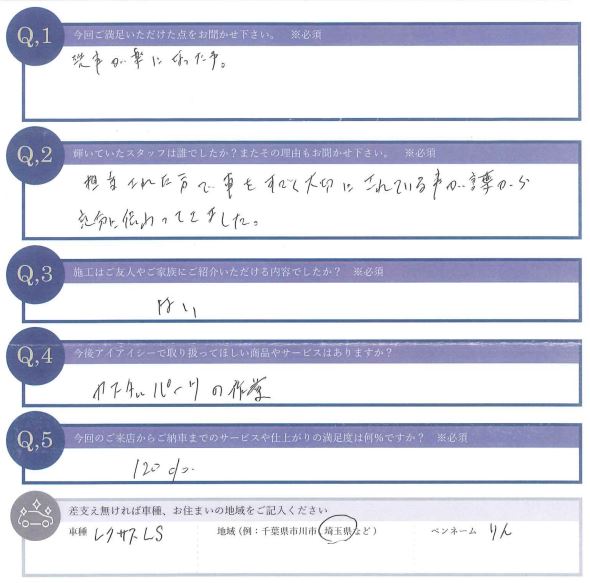 Q,1 今回ご満足いただけた点をお聞かせ下さい。 ※必須
洗車が楽になった事。
Q,2 輝いていたスタッフは誰でしたか？またその理由もお聞かせ下さい。 ※必須
担当された方で車をすごく大切にされている事が言葉から
充分に伝わってきました。
Q,3 施工はご友人やご家族にご紹介いただける内容でしたか？ ※必須
はい
Q,4 今後アイアイシーで取り扱ってほしい商品やサービスはありますか？
カスタムパーツの作業
Q,5 今回のご来店からご納車までのサービスや仕上がりの満足度は何％ですか？ ※必須
120%
差支え無ければ車種、お住まいの地域をご記入ください
車種 レクサスLS 地域（例：千葉県市川市 埼玉県など） ペンネーム りん